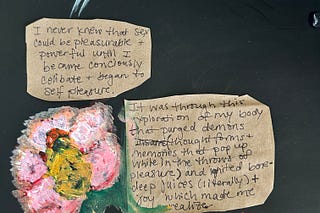 I never knew that sex
could be pleasurable +
powerful until I
became conciously
celibate + began to
self pleasure.
It was through this
exploration of my body
that purged demons
thought forms +
memories that pop up
while in the throws of
pleasure) and ignited bone-
deep juices (literally) +
joy which made me
realize